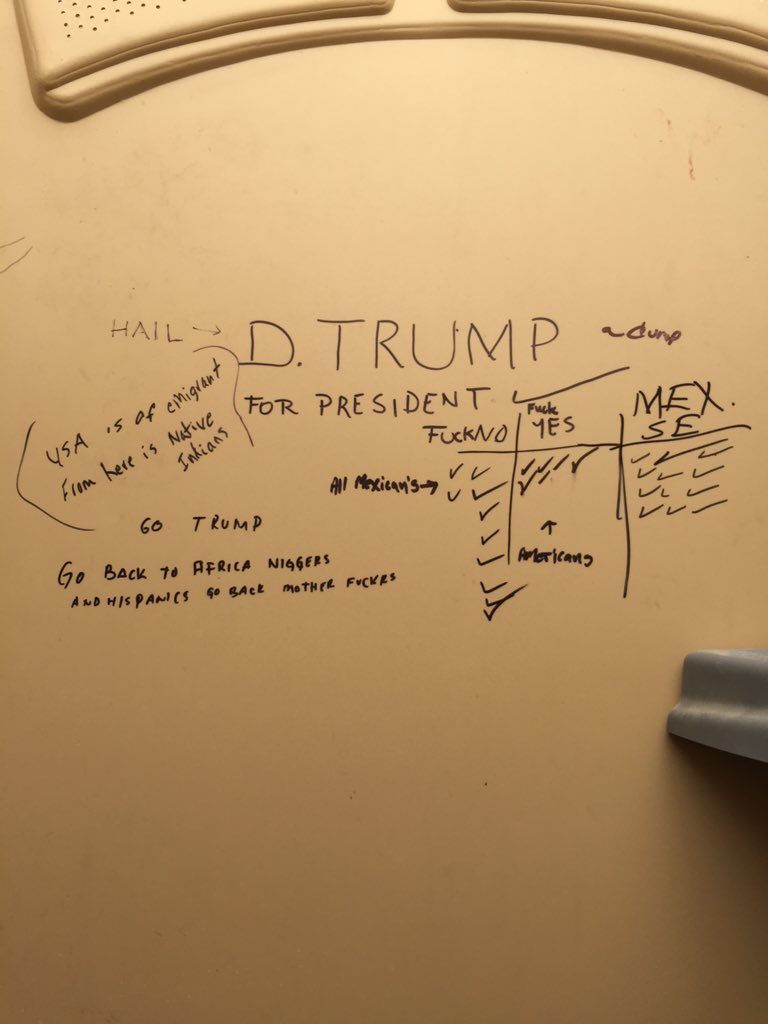 HAIL → D. TRUMP ~dump
FOR PRESIDENT
USA is of emigrant
From here is Native
Indians
FUCK NO
Fuck
YES
MEX.
SE
All Mexican's →
↑
Americans
GO TRUMP
GO BACK TO AFRICA NIGGERS
AND HISPANICS GO BACK MOTHER FUCKRS